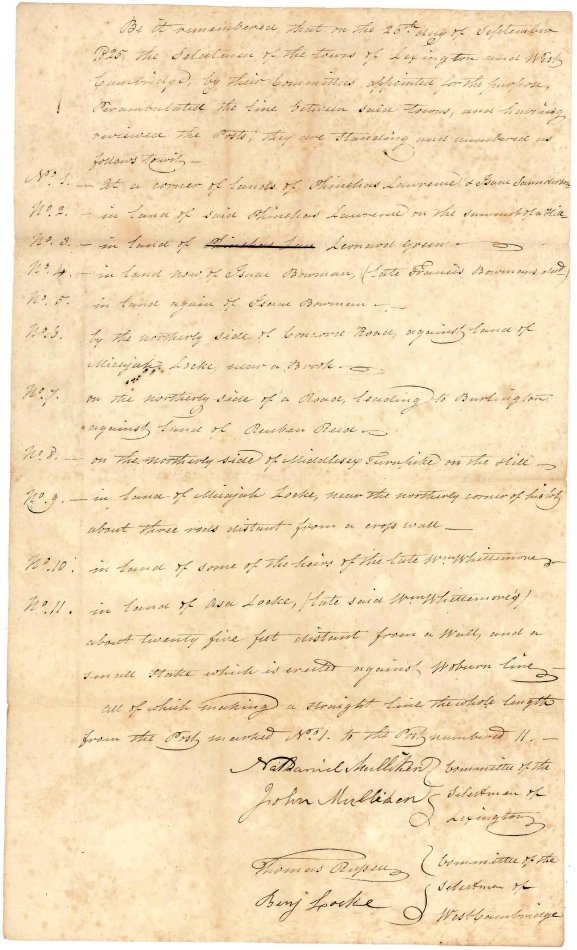 Be it remembered that on the 26th day of September
1825, the Selectmen of the towns of Lexington and West
Cambridge, by their Committees appointed for the purpose,
Perambulated the line between said towns, and having
reviewed the Posts, they are standing and numbered as
follows towit, —
No. 1. — At a corner of lands of Phinehas Lawrence & Isaac Saunderson
No. 2. — in land of said Phinehas Lawrence on the summit of a Hill
No. 3. — in land of Phinehas Law Leonard Green —
No. 4. — in land now of Isaac Bowman, (late Francis Bowmans
No. 5. in land again of Isaac Bowman —
No. 6. by the northerly side of Concord Road, against land of
Micajah Locke, near a Brook —
No. 7. on the northerly side of a Road, leading to Burlington
against land of Reuben Reed —
No. 8. — on the northerly side of Middlesex Turnpike on the Hill —
No. 9. — in land of Micajah Locke, near the northerly corner of his lot
about three rods distant from a cross wall —
No. 10. in land of some of the heirs of the late Wm Whittemore
No. 11. in land of Asa Locke, (late said Wm Whittemore's)
about twenty five feet distant from a Wall, and a
small stake which is erected against Woburn line —
all of which making a straight line the whole length
from the Post marked No. 1. to the Post numbered 11. —
Nathaniel Mulliken
John Mulliken
Committee of the
Selectmen of
Lexington
Thomas Russell
Benj Locke
Committee of the
Selectmen of
West Cambridge